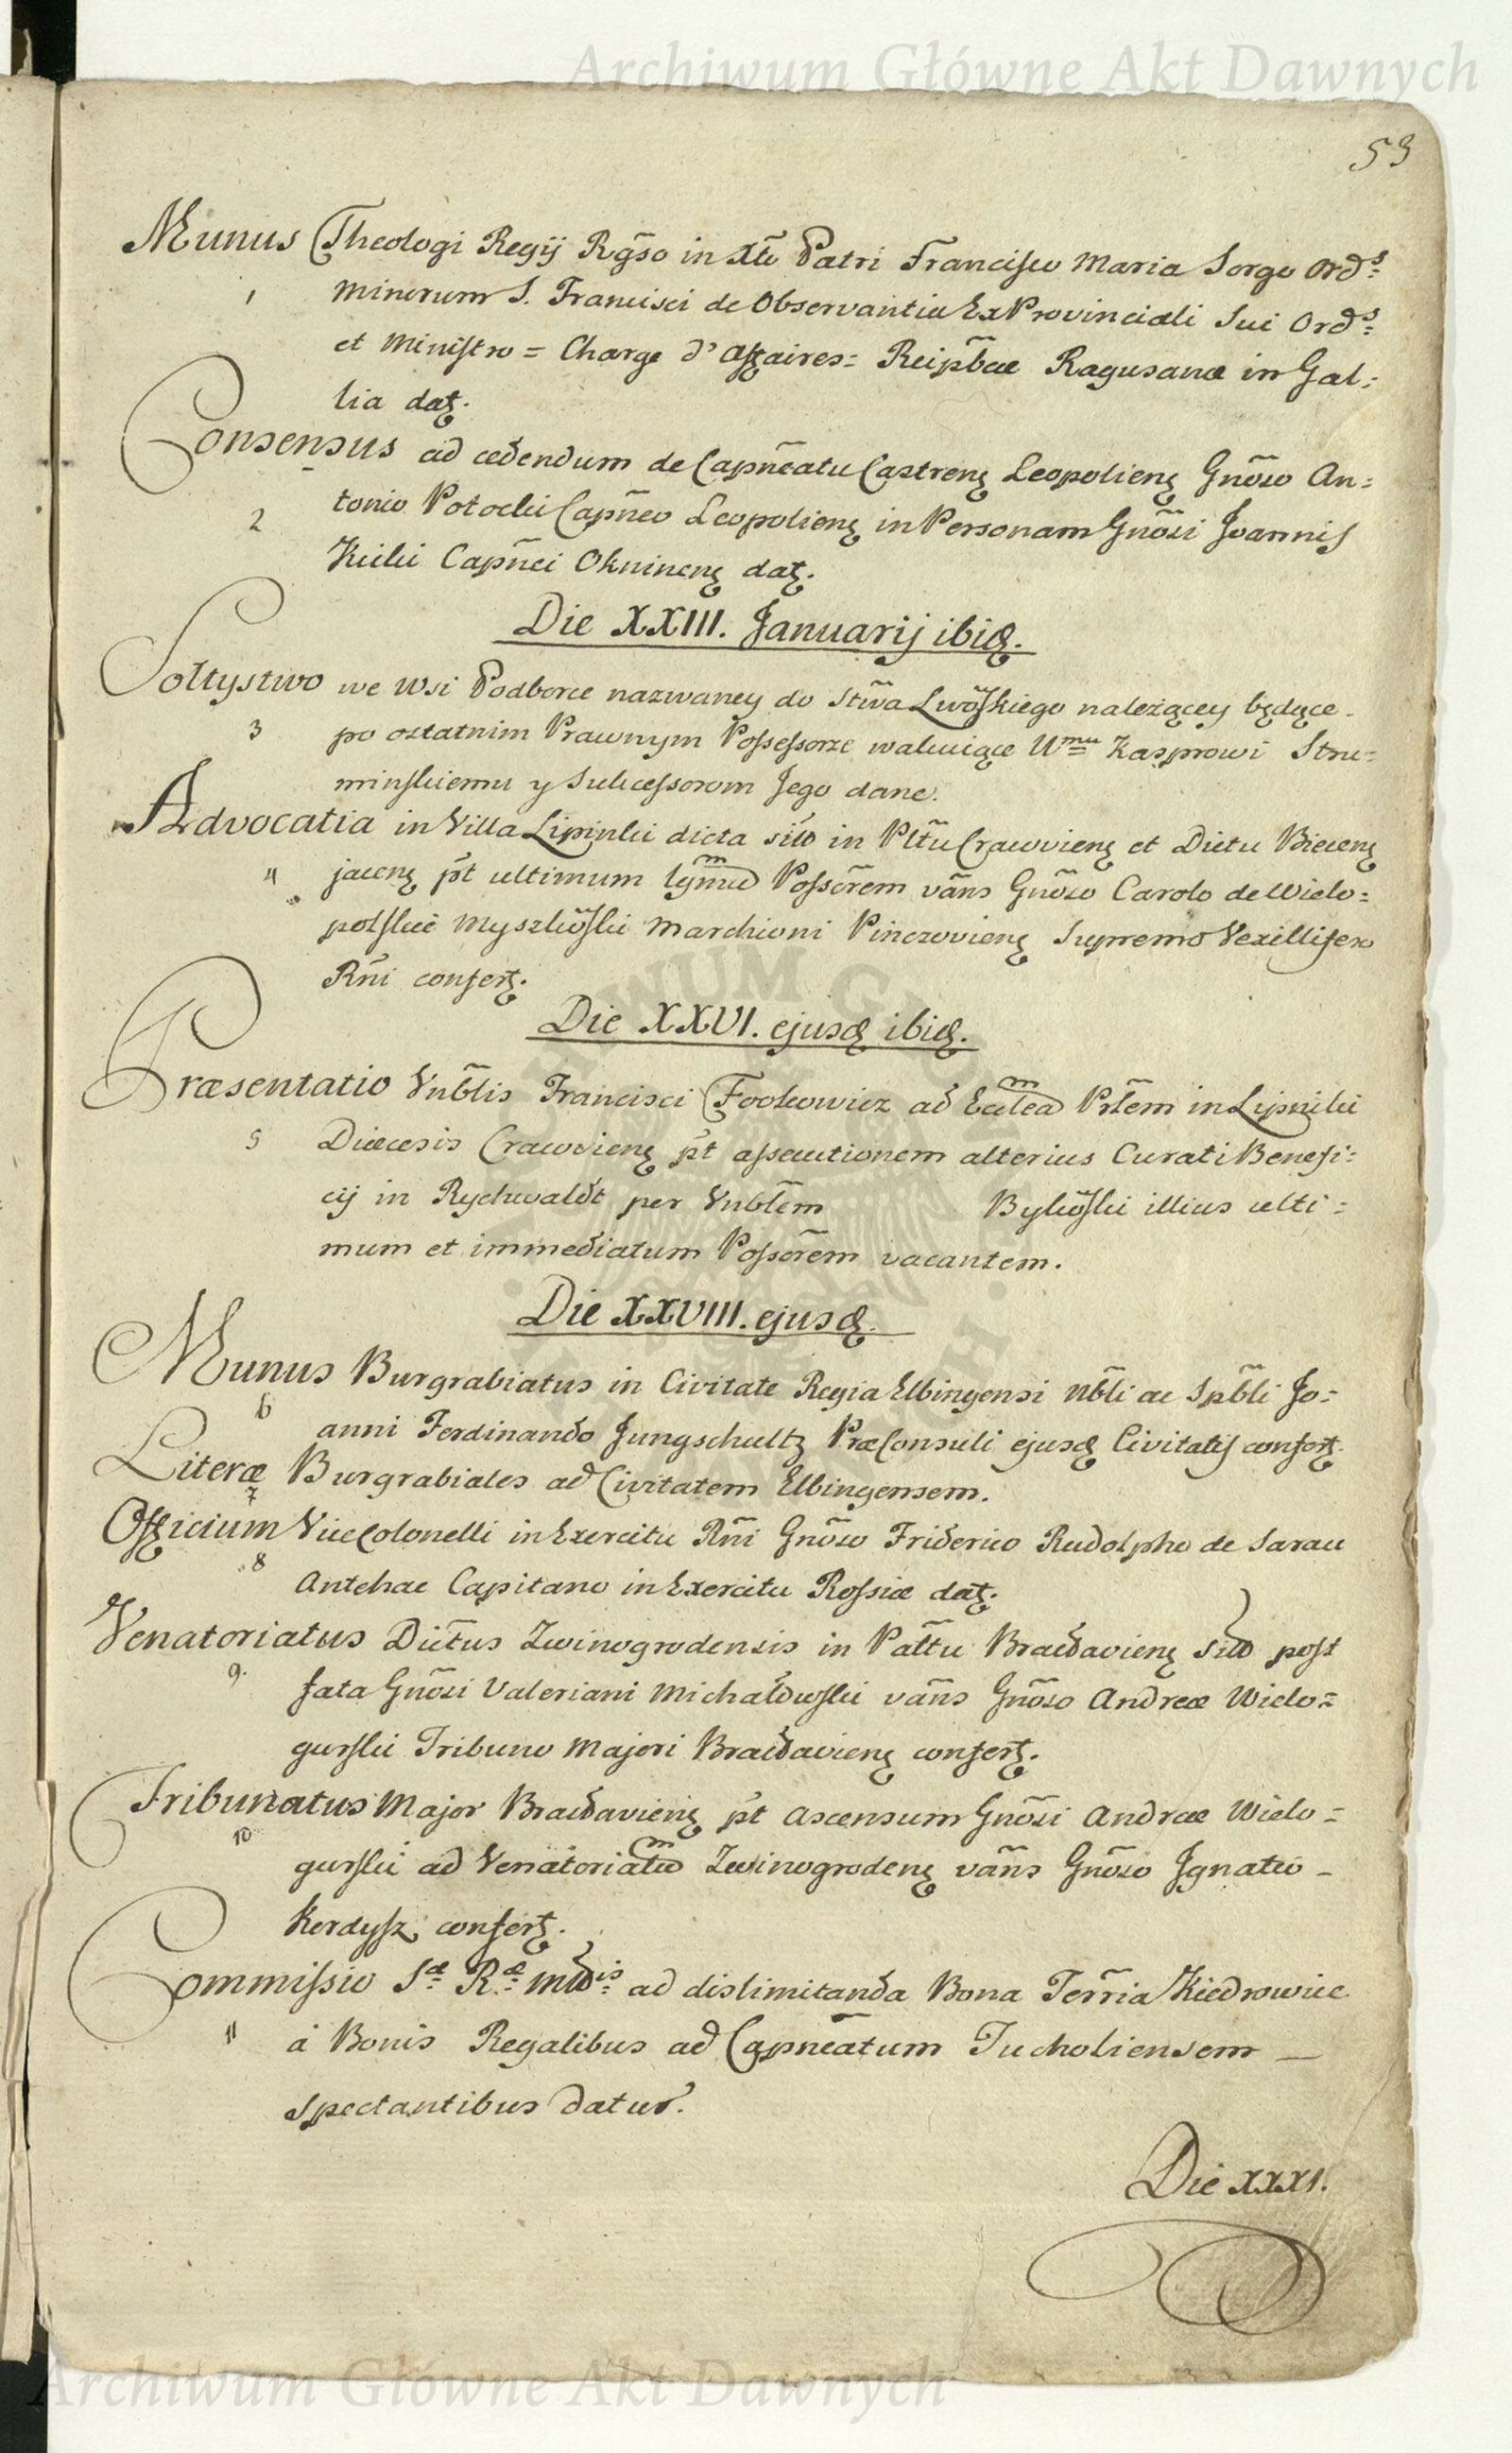 Archiwum Główne Akt Dawnych
53
Munus Theologi Regij Rgso in Xto Patri Francisco Maria Sorgo Ords
1 Minorum S. Francisci de Observantia ExProvinciali Sui Ords
et Ministro = Charge d'Affaires = Reipbae Ragusanae in Gal=
lia dat.
Consensus ad cedendum de Capneatu Castren Leopolien Gnoso An=
2 tonio Potocki Capneo Leopolien in Personam Gnosi Joannis
Kicki Capnei Okninen dat.
Die XXIII. Januarij ibid.
Sołtystwo we Wsi Podborce nazwaney do Stwa Lwoskiego należącey będące
3 po ostatnim Prawnym Possessorze wakuiące Umu Kasprowi Stru=
minskiemu y Sukcessorom Jego dane.
Advocatia in Villa Lipinki dicta sito in Pltu Cracovien et Dictu Biecen
4 jacen pt ultimum lgmum Possorem vans Gnoso Carolo de Wielo=
polskie Myszkoski Marchioni Pinczovien Supremo Vexillifero
Rni confert.
Die XXVI. ejusd ibid.
Præsentatio Vnblis Francisci Fookowicz ad Eccleam Prlem in Lipniki
5 Diœcesis Cracovien pt assecutionem alterius Curati Benefi=
cij in Rychwaldt per Vnblem Bylioski illius ulti=
mum et immediatum Possorem vacantem.
Die XXVIII. ejusd.
Munus Burgrabiatus in Civitate Regia Elbingensi Nbli ac Spbli Jo=
6 anni Ferdinando Jungschultz PræConsuli ejusd Civitatis confert.
Literæ Burgrabiales ad Civitatem Elbingensem.
7
Officium ViceColonelli in Exercitu Rni Gnoso Friderico Rudolpho de Sarau
8 Antehac Capitano in Exercitu Rossiæ dat.
Venatoriatus Dictus Zwinogrodensis in Paltu Bracłavien sito post
9. fata Gnosi Valeriani Michałowski vans Gnoso Andreæ Wielo=
gurski Tribuno Majori Bracłavien confert.
Tribunatus Major Bracłavien pt ascensum Gnosi Andreæ Wielo=
10 gurski ad Venatoriatum Zwinogroden vans Gnoso Ignatio –
Kerdysz confert.
Commissio Sæ Ræ Mttis ad dislimitanda Bona Terria Kiedrowice
11 á Bonis Regalibus ad Capneatum Tucholiensem –
spectantibus datur.
Die XXXI.
Archiwum Główne Akt Dawnych